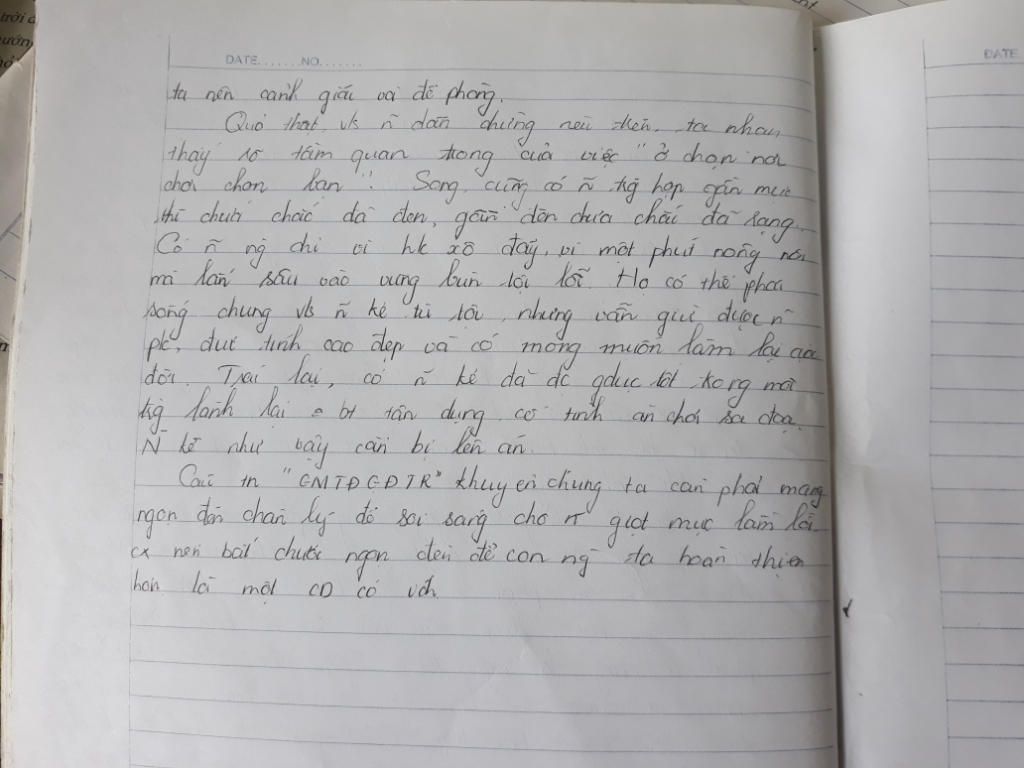 DATE.......NO.......
DATE
ta nên cảnh giác với đề phòng.
Quả thật, vs ñ dẫn chứng nêu trên, ta nhận
thấy rõ tầm quan trọng của việc "ở chọn nơi
chơi chọn bạn". Song, cũng có ñ tkg hợp gần mực
thì chưa chắc đã đen, gần đèn chưa chắc đã rạng.
Có ñ ng chỉ vì hk xô đẩy, vì một phút nông nổi
mà lấn sâu vào vũng bùn tội lỗi. Họ có thể phải
sống chung vs ñ kẻ tù tội, nhưng vẫn giữ được ñ
pc, đức tính cao đẹp và có mong muốn làm lại cuộc
đời. Trái lại, có ñ kẻ đã đc gdục tốt trong môi
tkg lành lại bt tận dụng, cố tình ăn chơi sa đoạ.
Ñ kẻ như vậy cần bị lên án.
Câu tn "GMTĐGĐTR" khuyên chúng ta cần phải mang
ngọn đèn chân lý để soi sáng cho giọt mực lầm lỗi
cx nên bắt chước ngọn đèn để con ng ta hoàn thiện
hơn là một CD có ích.